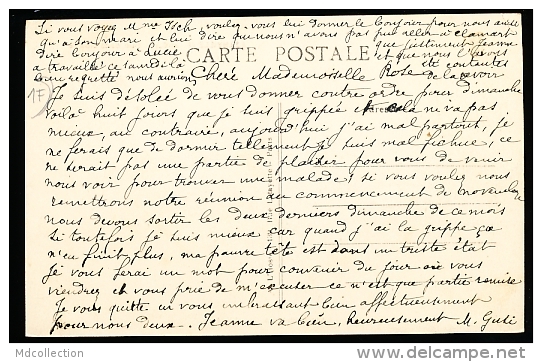 Si vous voyez Mme Isch, voulez-vous lui donner le bonjour pour nous ainsi
qu'à son mari et lui dire que nous n'avons pas pu aller à Clamart
dire bonjour à Lucie
que justement Jeanne
a travaillé ce samedi là
et que nous l'avons
bien regretté nous aurions
été contentes
CARTE POSTALE
de la revoir
17
Chère Mademoiselle Rose
Je suis désolée de vous donner contre ordre pour dimanche
voilà huit jours que je suis grippée et cela ne va pas
mieux, au contraire, aujourd'hui j'ai mal partout, je
ne ferais que de dormir tellement je suis mal fichue, ce
ne serait pas une partie de plaisir pour vous de venir
nous voir pour trouver une malade, si vous voulez nous
remettrons notre réunion au commencement de novembre
nous devons sortir les deux derniers dimanche de ce mois
Si toutefois je suis mieux car quand j'ai la grippe ça
n'en finit plus, ma pauvre tête est dans un triste état
Je vous ferai un mot pour convenir du jour où vous
viendrez et vous prie de m'excuser ce n'est que partie remise
Je vous quitte en vous embrassant bien affectueusement
pour nous deux. Jeanne va bien, heureusement M.
Mdcollection
http://www.delcampe.net